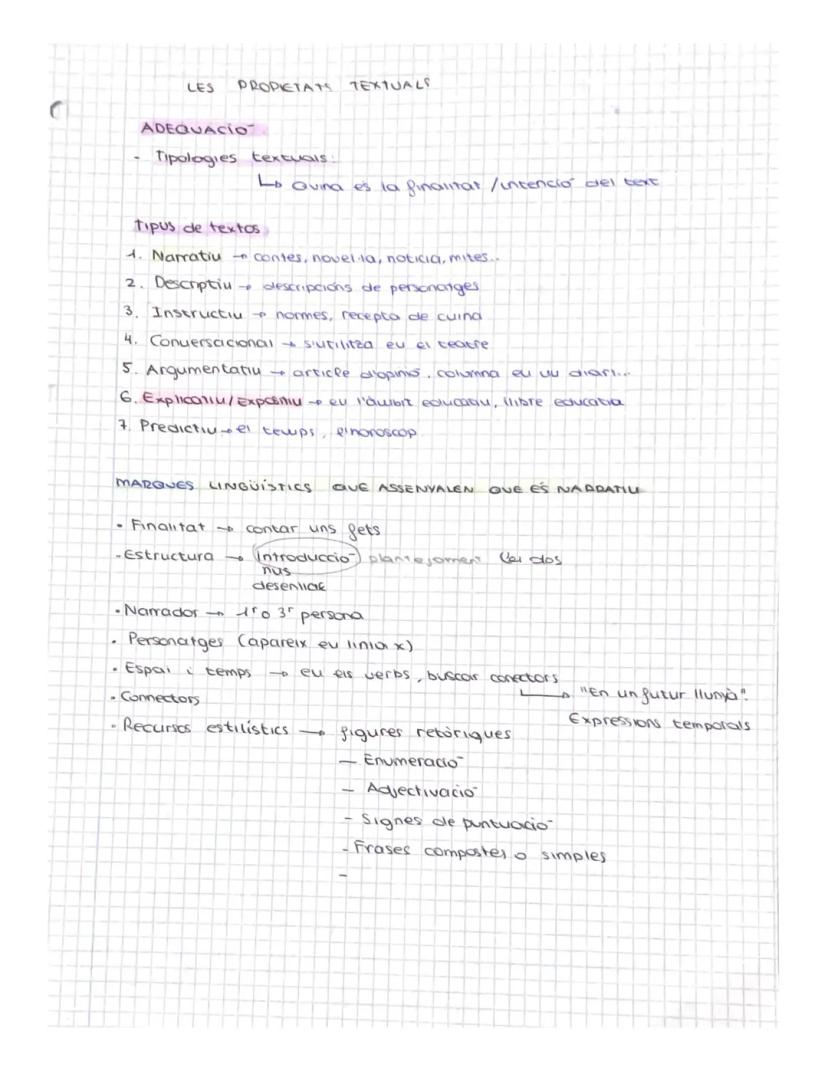 LES PROPIETATS TEXTUALS
ADEQUACIÓ
- Tipologies textuals:
↳ Quina es la finalitat / intenció del text
Tipus de textos
1. Narratiu → contes, novel·la, noticia, mites..
2. Descriptiu → descripcions de personatges
3. Instructiu → normes, recepta de cuina
4. Conversacional → s'utilitza en el teatre
5. Argumentatiu → article d'opinió, columna en un diari...
6. Explicatiu/Expositiu → en l'àmbit educatiu, llibre educatiu
7. Predictiu → el temps, l'horoscop
MARQUES LINGÜÍSTICS QUE ASSENYALEN QUE ÉS NARRATIU
• Finalitat → contar uns fets
- Estructura → Introducció plantejament (les dos
nus
desenllaç
• Narrador → 1r o 3r persona
• Personatges (apareix en linia x)
• Espai i temps → en els verbs, buscar conectors
↳ "En un futur llunyà".
• Connectors
Expressions temporals
• Recursos estilístics → figures retòriques
- Enumeració
- Adjectivació
- Signes de puntuació
- Frases compostes o simples
-